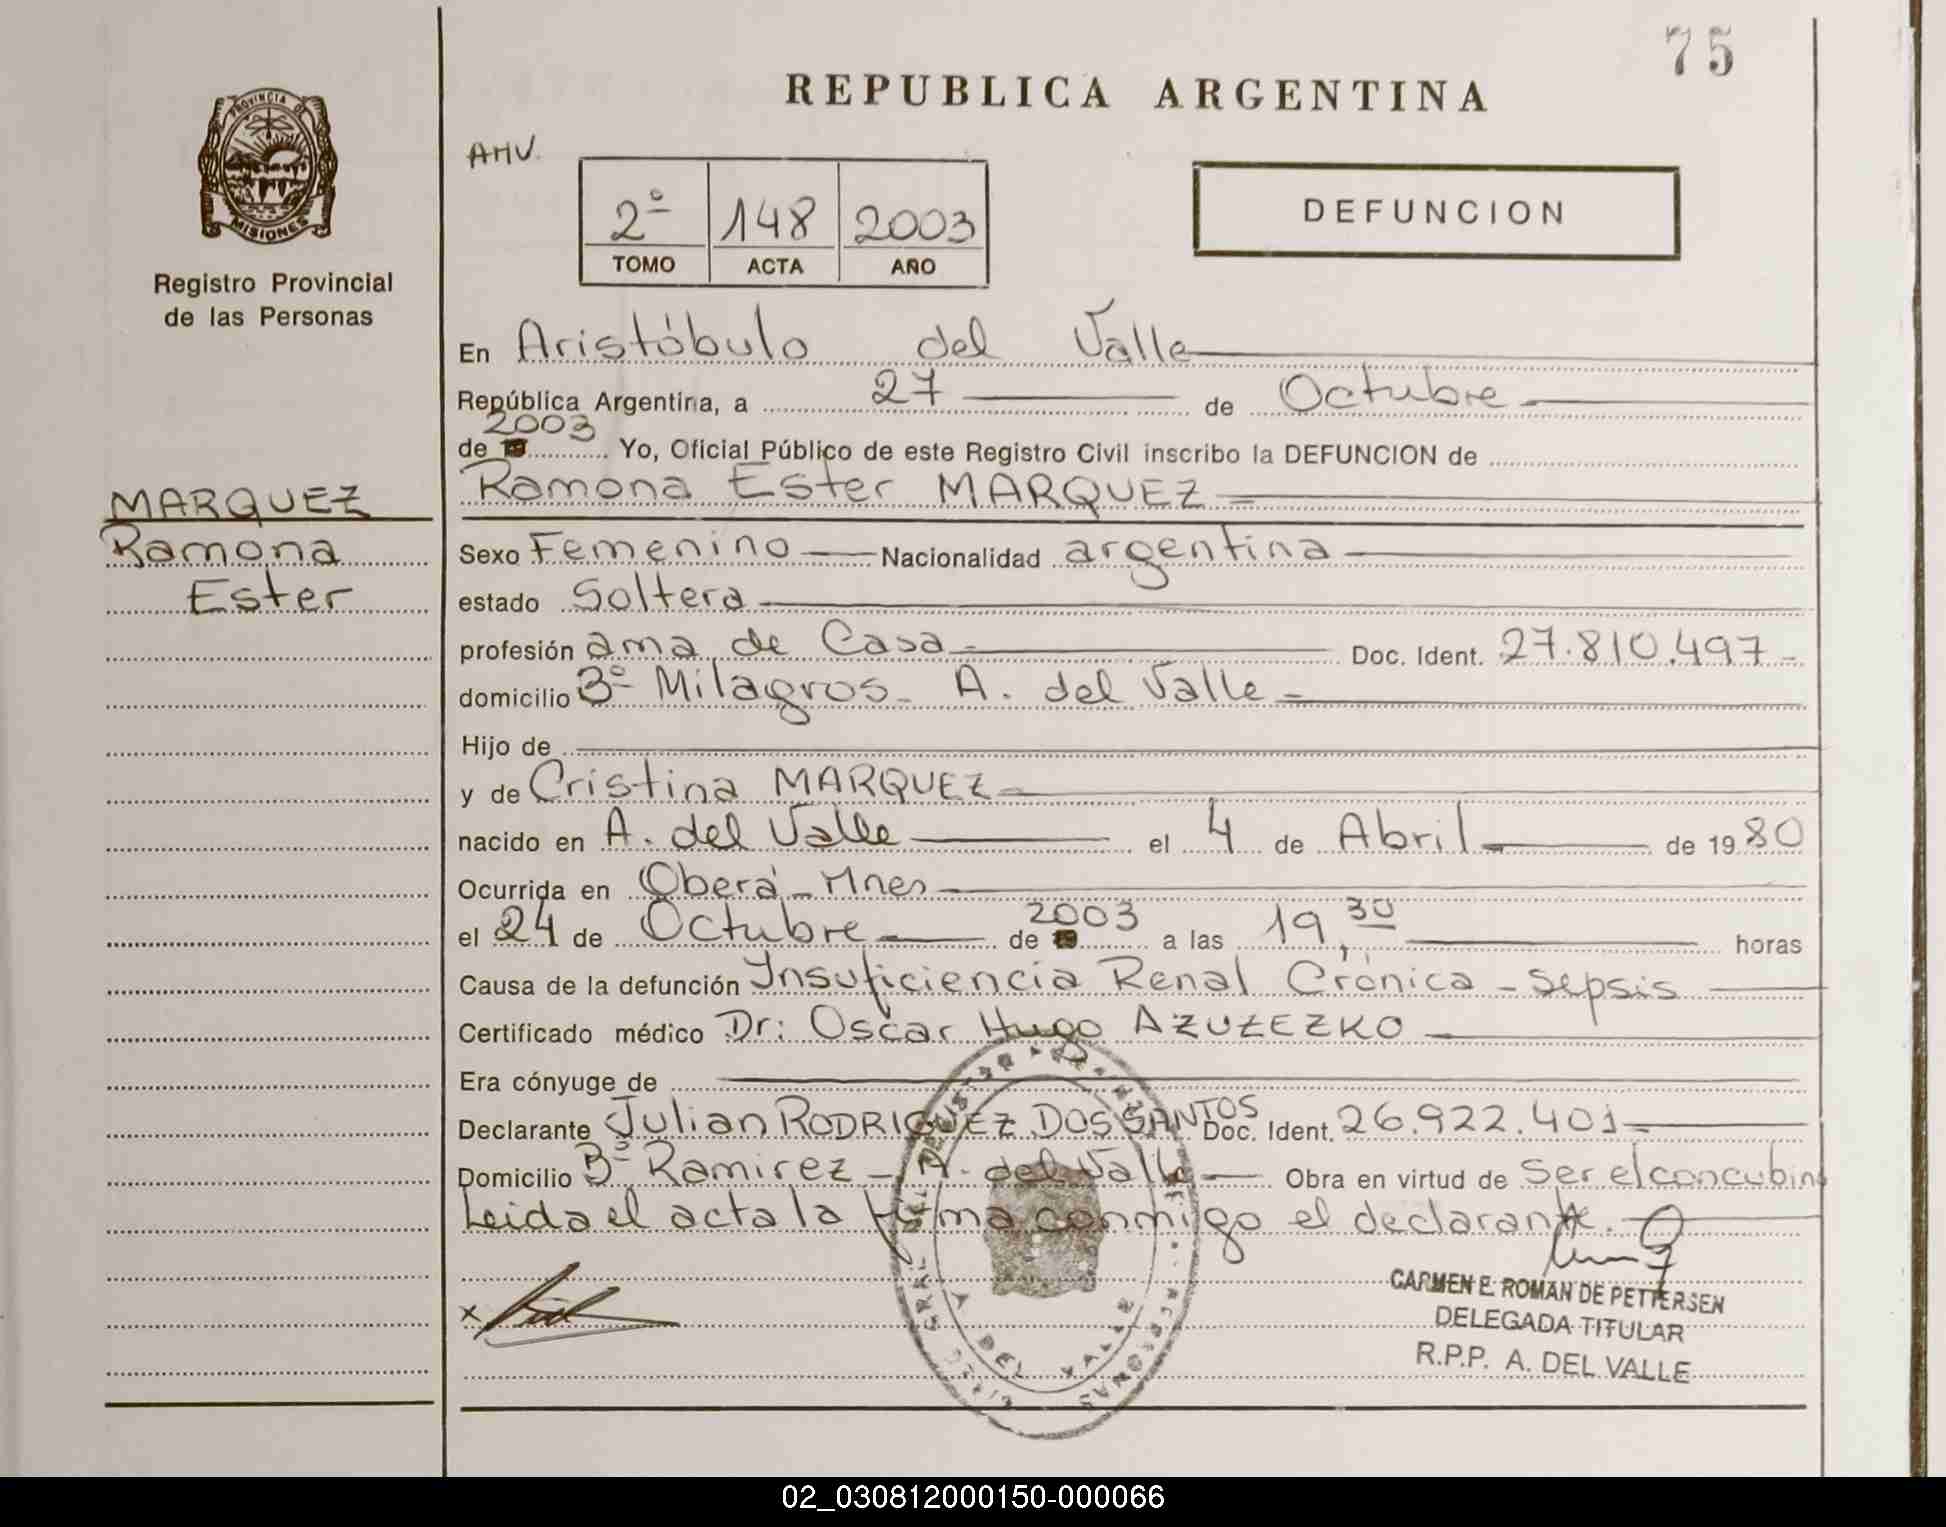 75
REPUBLICA ARGENTINA
PROVINCIA DE
MISIONES
Registro Provincial
de las Personas
AHV.
2º 148 2003
TOMO ACTA AÑO
DEFUNCION
En Aristóbulo del Valle
República Argentina, a 27 de Octubre
2003
de 19 Yo, Oficial Público de este Registro Civil inscribo la DEFUNCION de
MARQUEZ
Ramona
Ester
Ramona Ester MARQUEZ
Sexo Femenino Nacionalidad argentina
estado Soltera
profesión ama de Casa Doc. Ident. 27.810.497
domicilio Bº Milagros - A. del Valle
Hijo de
y de Cristina MARQUEZ
nacido en A. del Valle el 4 de Abril de 1980
Ocurrida en Oberá - Mnes
el 24 de Octubre de 19 2003 a las 19,30 horas
Causa de la defunción Insuficiencia Renal Crónica - sepsis
Certificado médico Dr: Oscar Hugo AZUZEZKO
Era cónyuge de
Declarante Julian RODRIGUEZ DOS SANTOS Doc. Ident. 26.922.401
Domicilio Bº Ramirez - A. del Valle Obra en virtud de ser el concubino
Leida el acta la firma conmigo el declarante.
x
CARMEN E. ROMAN DE PETTERSEN
DELEGADA TITULAR
R.P.P. A. DEL VALLE
A DEL VALLE
02_030812000150-000066